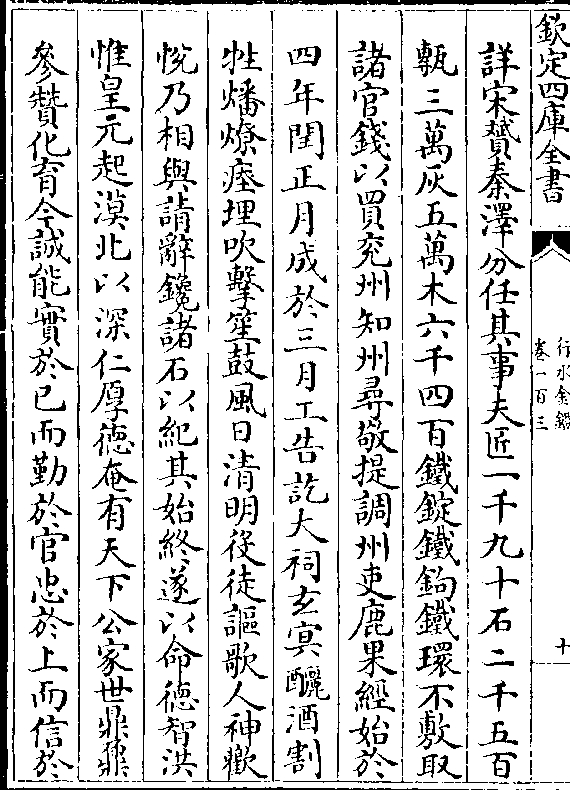 欽定四庫全書
行水金鑑
卷一百三
十
詳宋贇秦澤分任其事夫匠一千九十石二千五百
甎三萬灰五萬木六千四百鐵錠鐵鉤鐵環不敷取
諸官錢以買兖州知州尋敬提調州吏鹿果經始於
四年閏正月成於三月工告訖大祠玄㝠釃酒割
牲燔燎瘞埋吹擊笙鼓風日清明役徒謳歌人神歡
悅乃相與請辭鑱諸石以紀其始終遂以命德智洪
惟皇元起漠北以深仁厚德奄有天下公家世鼎鼐
參贊化育今誠能實於已而勤於官忠於上而信於